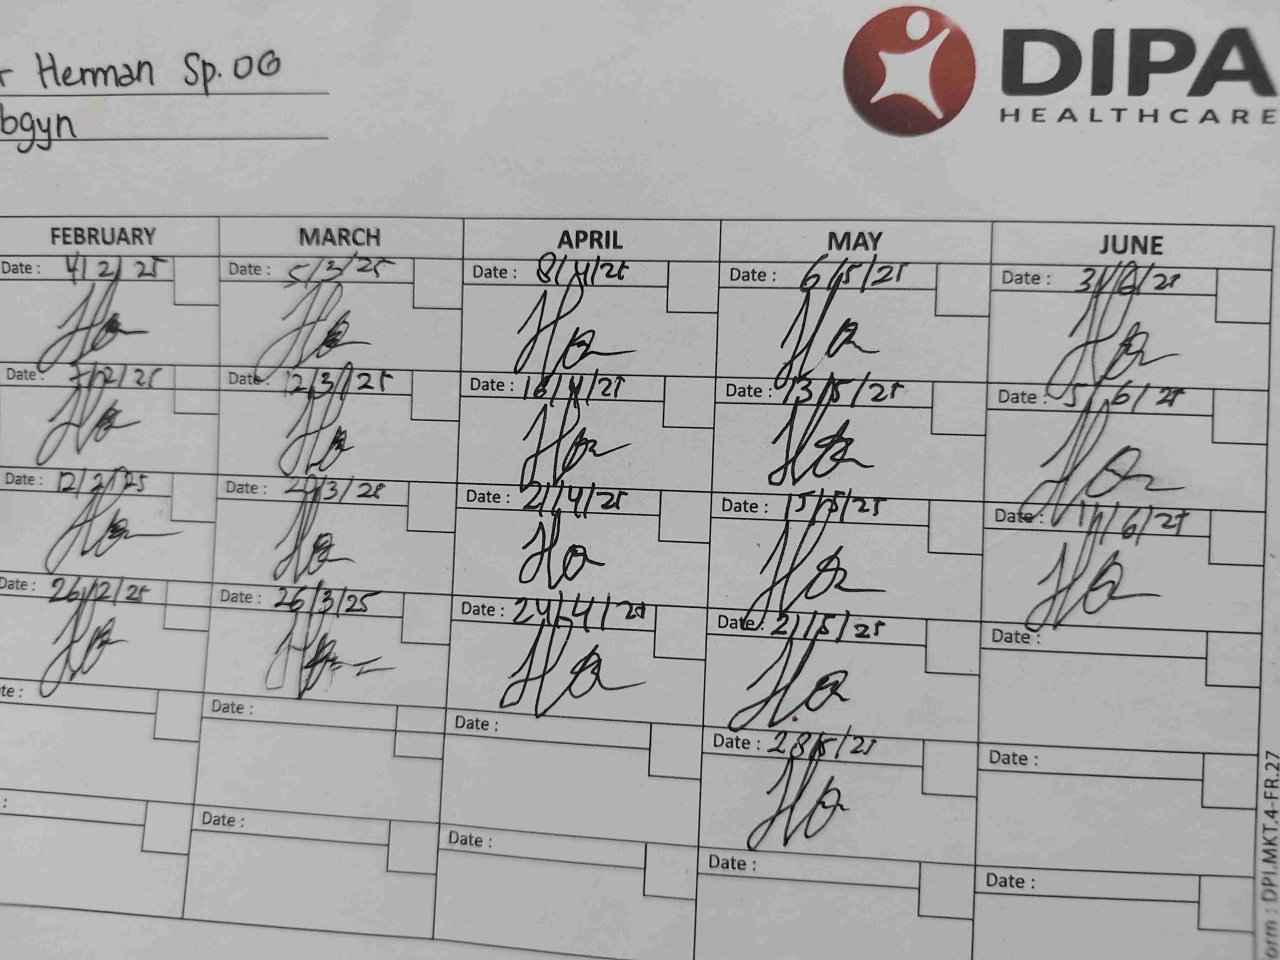 Herman Sp.OG
bgyn
DIPA
HEALTHCARE
FEBRUARY MARCH APRIL MAY JUNE
Date : 4/2/25 Date : 5/3/25 Date : 8/4/25 Date : 6/5/25 Date : 3/6/25
Date : 7/2/25 Date : 12/3/25 Date : 16/4/25 Date : 13/5/25 Date : 5/6/25
Date : 12/2/25 Date : /3/25 Date : 21/4/25 Date : 15/5/25 Date : 11/6/25
Date : 26/2/25 Date : 26/3/25 Date : 24/4/25 Date : 21/5/25 Date :
te : Date : Date : Date : 28/5/25 Date :
: Date : Date : Date : Date :
orm : DPI.MKT.4-FR.27